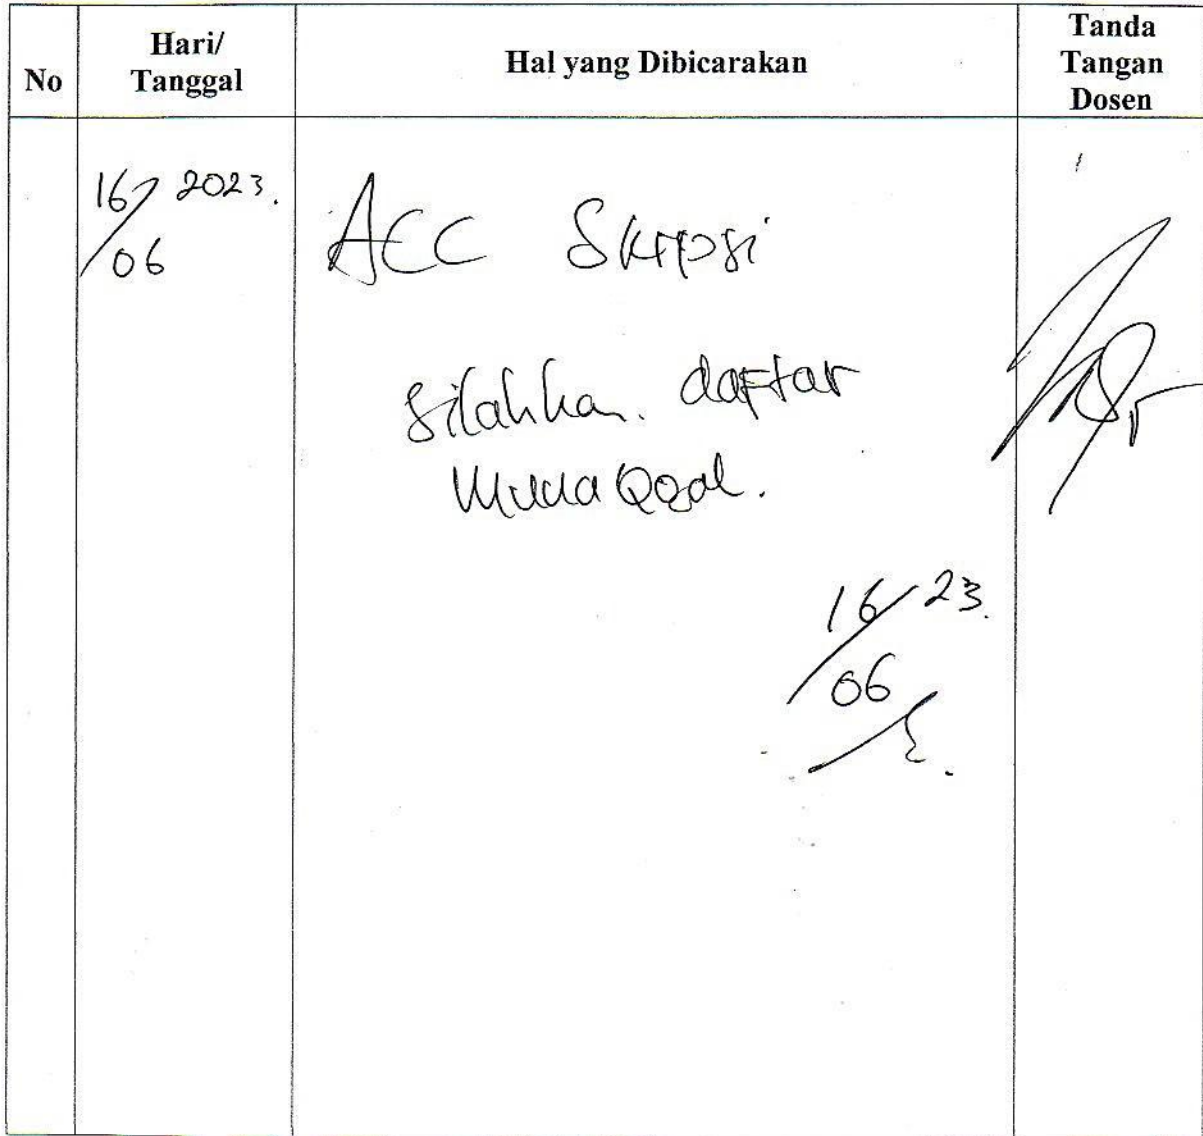 No
Hari/
Tanggal
Hal yang Dibicarakan
Tanda
Tangan
Dosen
16/06 2023.
ACC Skripsi
silahkan. daftar
MunaQosah.
16/06 23.